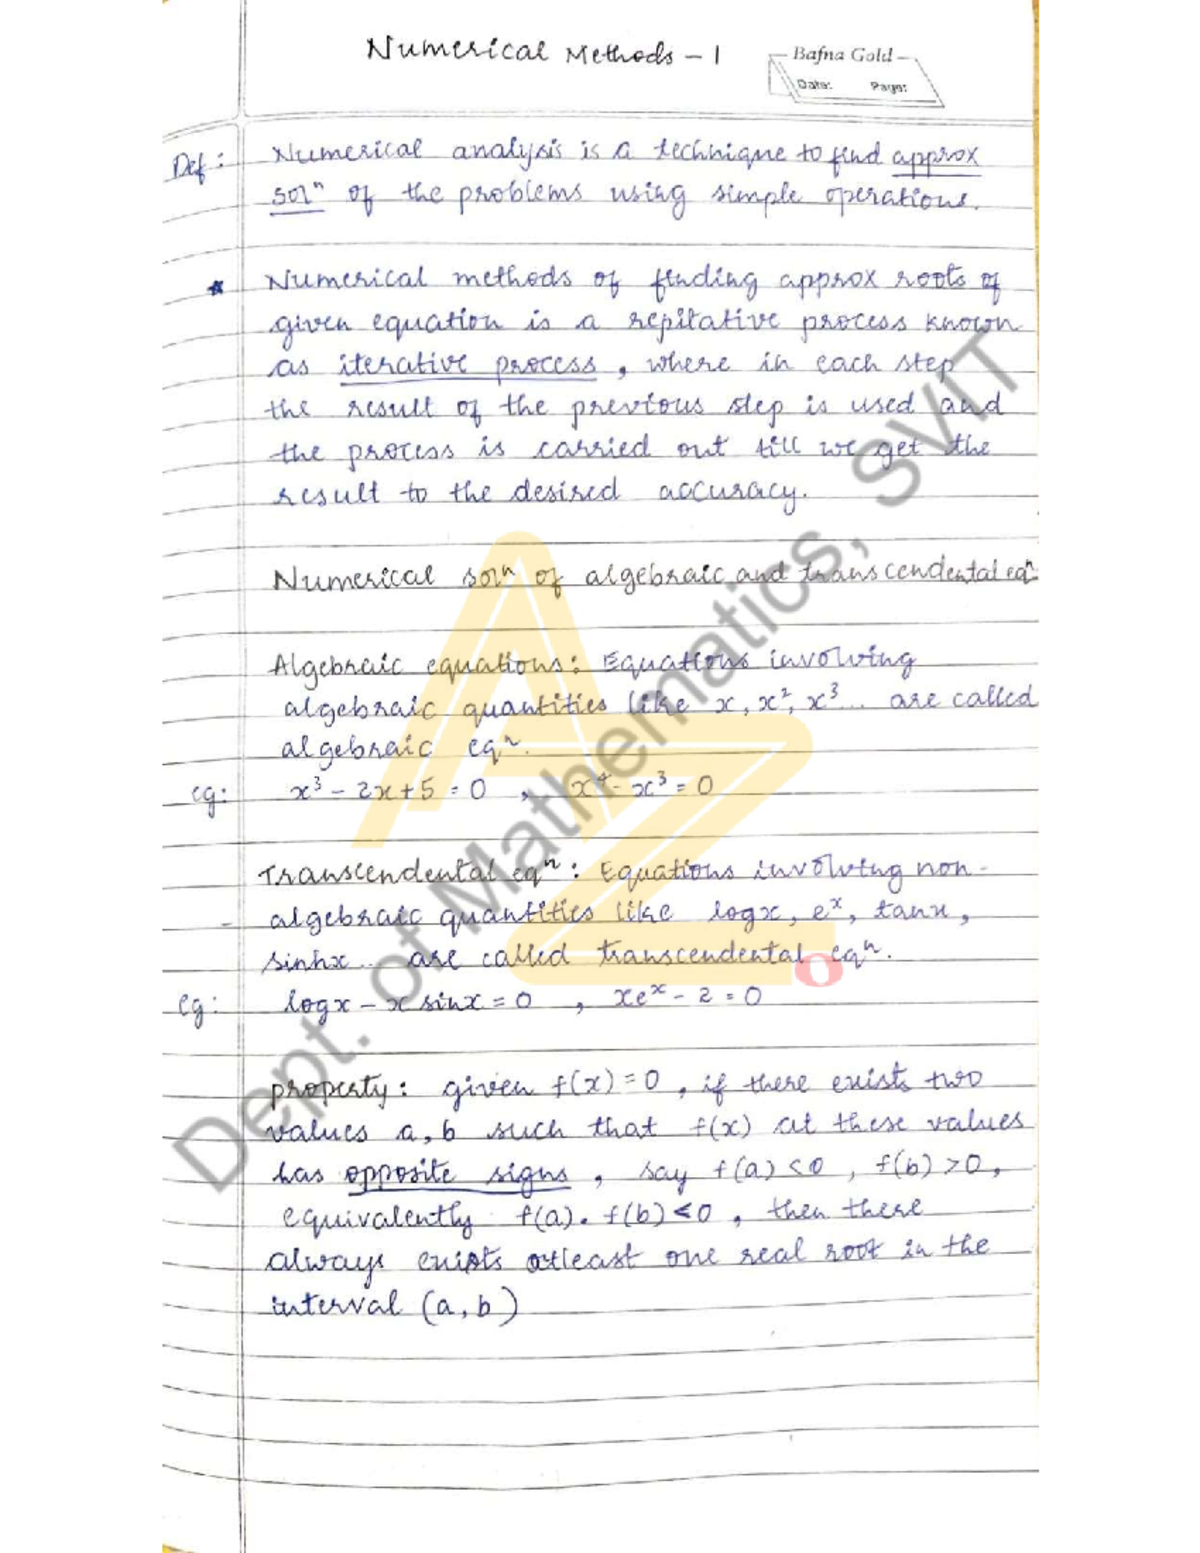 Numerical Methods - 1
Bafna Gold
Date: Page:
Def: Numerical analysis is a technique to find approx
solⁿ of the problems using simple operations.
* Numerical methods of finding approx roots of
given equation is a repitative process known
as iterative process, where in each step
the result of the previous step is used and
the process is carried out till we get the
result to the desired accuracy.
Numerical solⁿ of algebraic and transcendental eqⁿ
Algebraic equations: Equations involving
algebraic quantities like x, x², x³... are called
algebraic eqⁿ.
eg: x³ - 2x + 5 = 0 , x⁴ - x³ = 0
Transcendental eqⁿ: Equations involving non-
- algebraic quantities like logx, eˣ, tanx,
sinhx... are called transcendental eqⁿ.
eg: logx - x sinx = 0 , xeˣ - 2 = 0
property: given f(x) = 0 , if there exists two
values a, b such that f(x) at these values
has opposite signs , say f(a) < 0 , f(b) > 0,
equivalently f(a). f(b) < 0 , then there
always exists atleast one real root in the
interval (a, b)
Dept. of Mathematics, SVIT
AZ